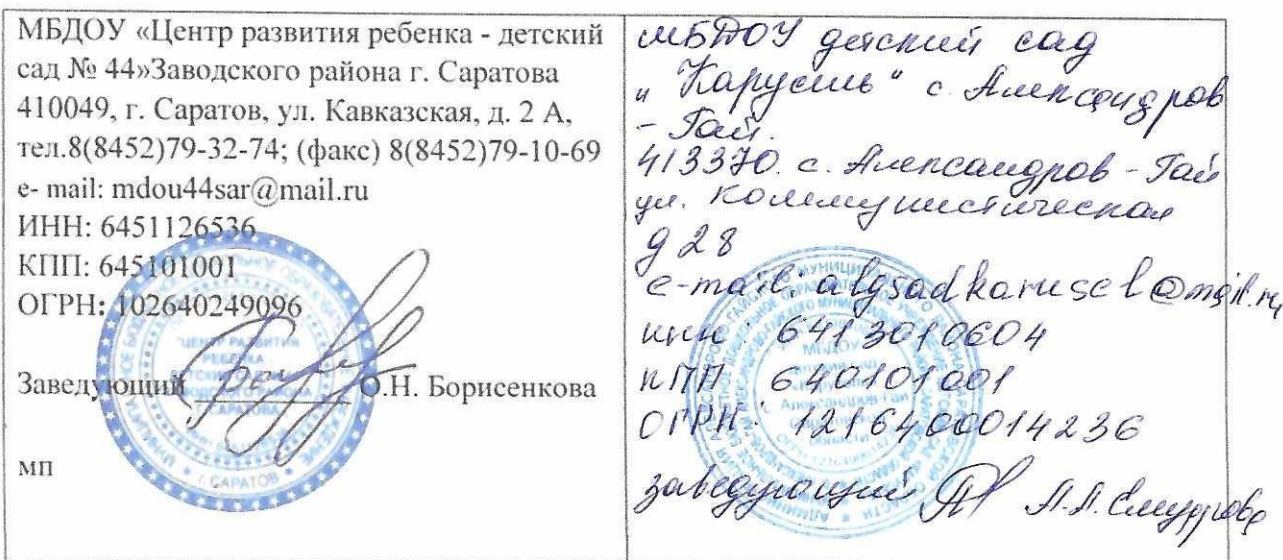 МБДОУ «Центр развития ребенка - детский
сад № 44»Заводского района г. Саратова
410049, г. Саратов, ул. Кавказская, д. 2 А,
тел.8(8452)79-32-74; (факс) 8(8452)79-10-69
e- mail: mdou44sar@mail.ru
ИНН: 6451126536
КПП: 645101001
ОГРН: 102640249096
Заведующий О.Н. Борисенкова
мп
"ЦЕНТР РАЗВИТИЯ
РЕБЕНКА -
САРАТОВА
г. САРАТОВ
МБДОУ детский сад
"Карусель" с. Александров
- Гай.
413370. с. Александров - Гай
ул. Коммунистическая
д 28
e-mail: algsadkarusel@mail.ru
инн: 6413010604
КПП 640101001
ОГРН: 1216400014236
заведующий
МБДОУ
с. Александров Гай